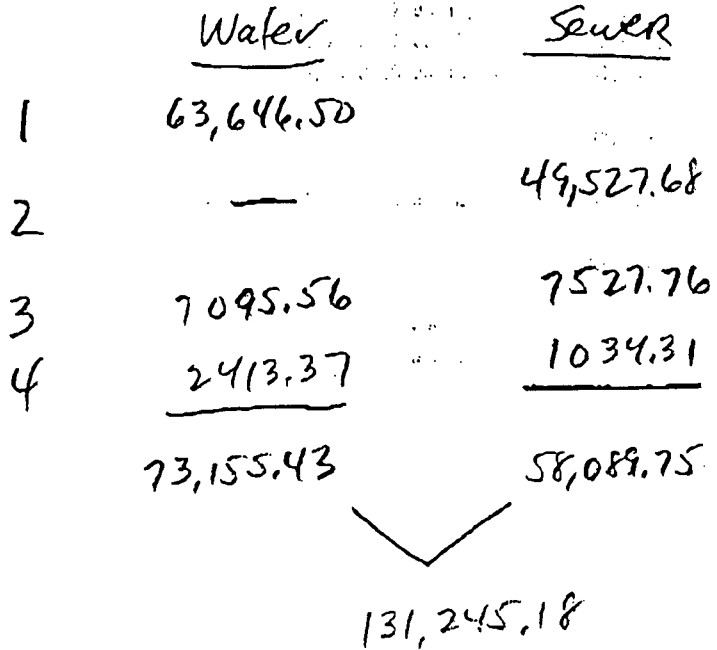 Water Sewer
1 63,646.50
2 — 49,527.68
3 7095.56 7527.76
4 2413.37 1034.31
73,155.43 58,089.75
131,245.18